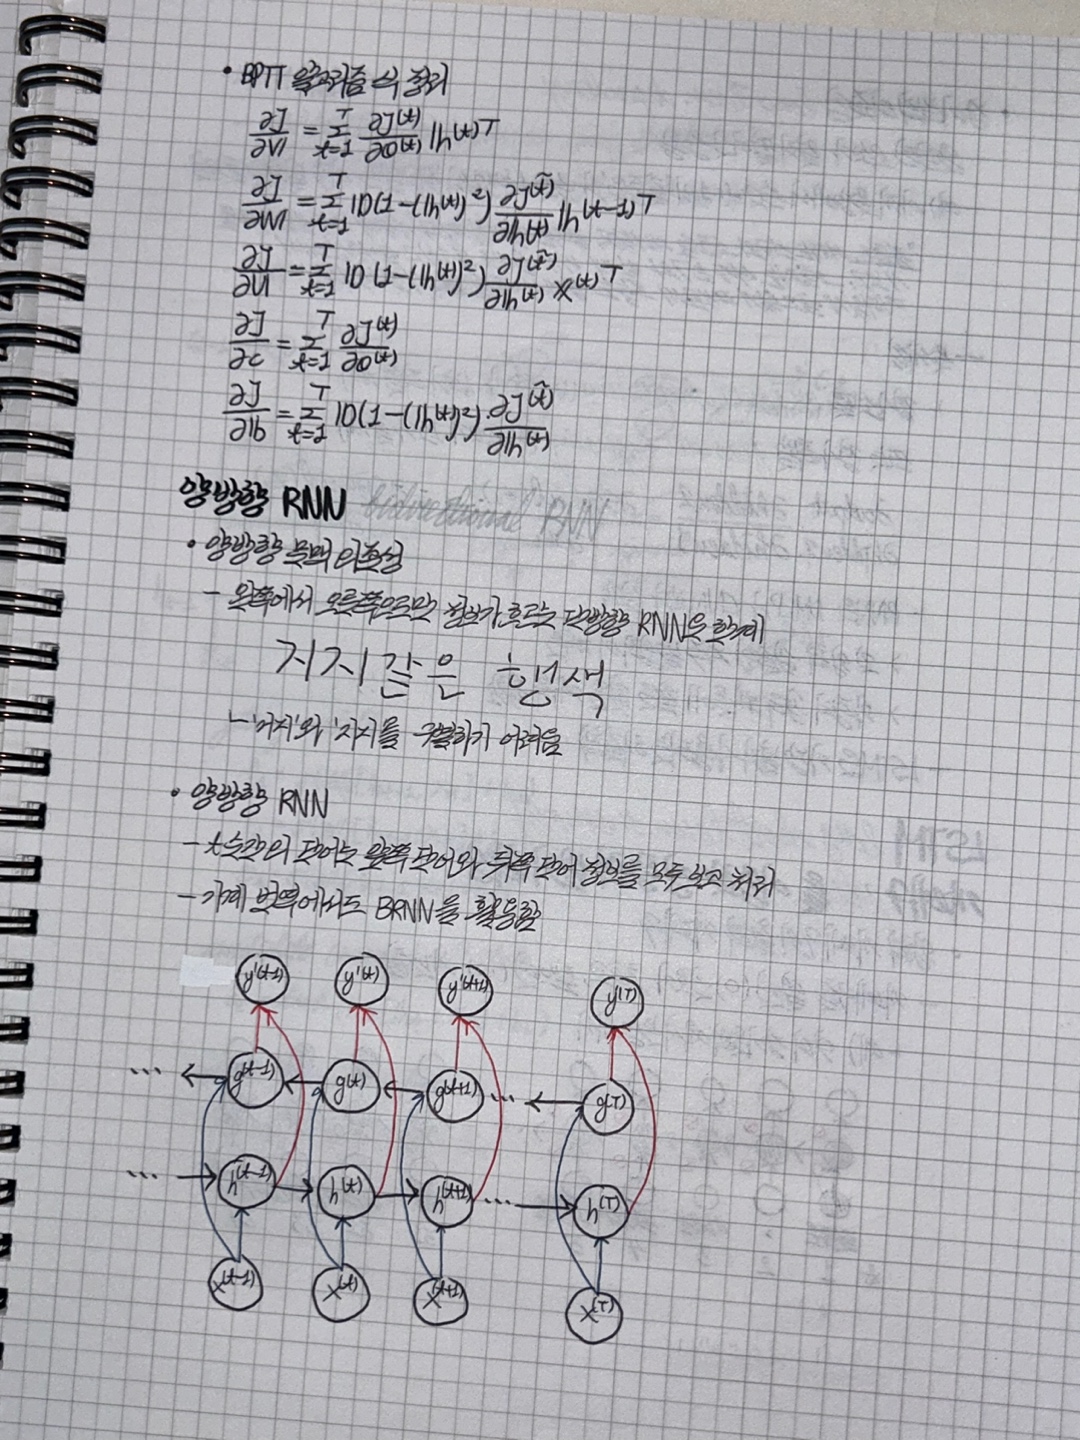 • BPTT 알고리즘 식 정리
∂J/∂V = Σ_{t=1}^{T} ∂J^(t)/∂o^(t) h^(t)T
∂J/∂W = Σ_{t=1}^{T} D(1-(h^(t))²) ∂J^(t~)/∂h^(t) h^(t-1)T
∂J/∂U = Σ_{t=1}^{T} D(1-(h^(t))²) ∂J^(t~)/∂h^(t) x^(t)T
∂J/∂c = Σ_{t=1}^{T} ∂J^(t)/∂o^(t)
∂J/∂b = Σ_{t=1}^{T} D(1-(h^(t))²) ∂J^(t~)/∂h^(t)
양방향 RNN bidirectional RNN
• 양방향 문맥 의존성
- 왼쪽에서 오른쪽으로만 정보가 흐르는 단방향 RNN은 한계
거지같은 행색
└ '거지'와 '지지'를 구별하기 어려움
• 양방향 RNN
- t순간의 단어는 왼쪽 단어와 뒤쪽 단어 정보를 모두 보고 처리
- 기계 번역에서도 BRNN을 활용함
y'(t-1) y'(t) y'(t+1) y'(T)
... g(t-1) g(t) g(t+1) ... g(T)
... h(t-1) h(t) h(t+1) ... h(T)
x(t-1) x(t) x(t+1) x(T)